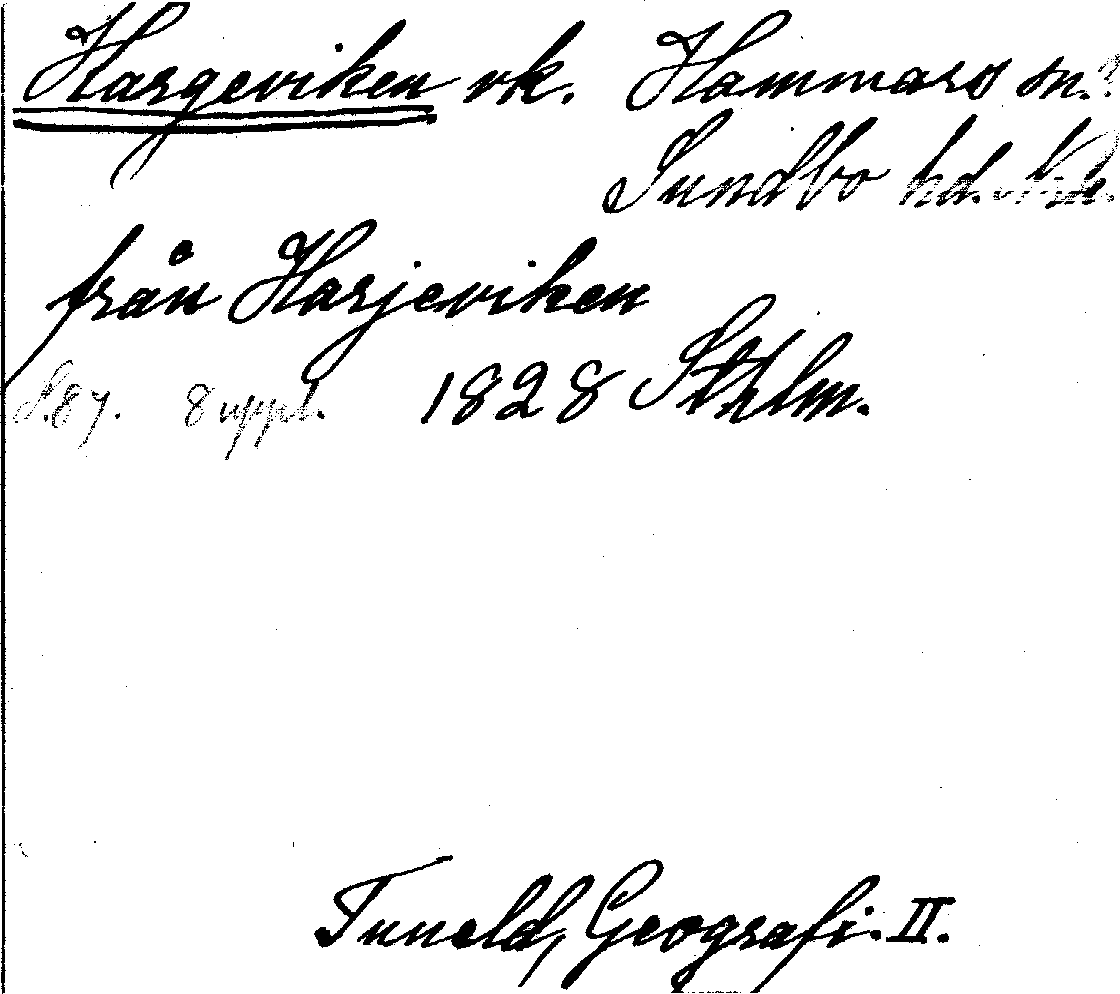 Hargeviken vk. Hammars sn.?
Sundbo hd. Nke.
från Harjeviken
S.87. 8 uppl. 1828 Sthlm.
Tuneld, Geografi. II.